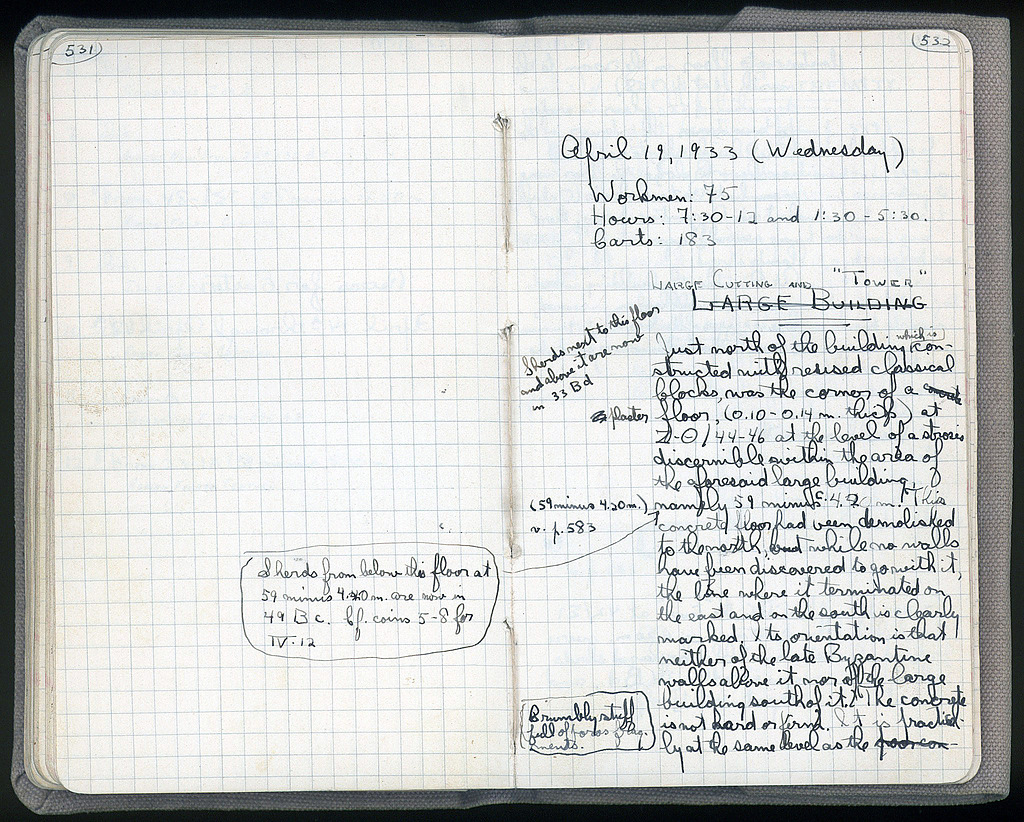 531
Sherds from below this floor at
59 minus 4.20 m. are now in
49 B c. Cf. coins 5-8 for
IV·12
532
April 19, 1933 (Wednesday)
Workmen: 75
Hours: 7:30-12 and 1:30-5:30.
Carts: 183
LARGE CUTTING AND "TOWER"
LARGE BUILDING
Sherds next to this floor
and above it are now
in 33 Bd
Just north of the building which is con-
structed with reused classical
blocks, was the corner of a
plaster floor, (0.10-0.14 m. thick) at
Z-Θ/44-46 at the level of a
discernible within the area of
the aforesaid large building,
(59 minus 4.20 m.)
v. p. 583
namely 59 minus c. 4.20 m. This
concrete floor had been demolished
to the north, and while no walls
have been discovered to go with it,
the line where it terminated on
the east and on the south is clearly
marked. Its orientation is that
neither of the late Byzantine
walls above it nor of the large
building south of it. The concrete
is not hard or firm. It is practical-
ly at the same level as the floor con-
Crumbly stuff
full of poros frag-
ments.